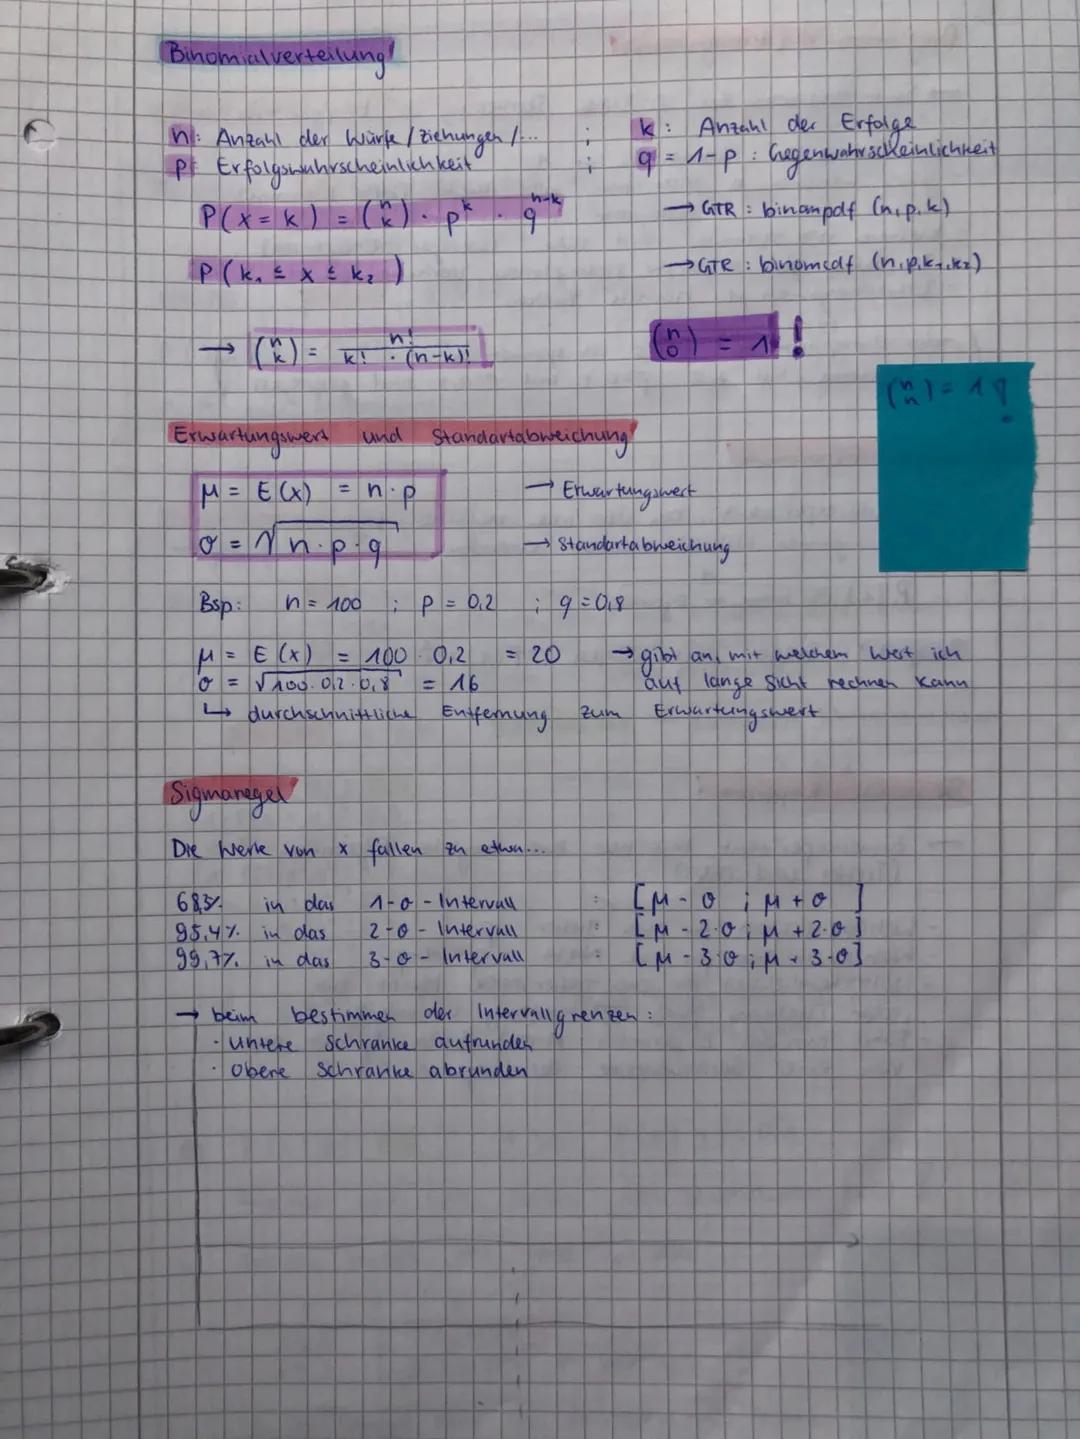 Binomialverteilung
n: Anzahl der Würfe / Ziehungen /... ; k: Anzahl der Erfolge
p: Erfolgswahrscheinlichkeit ; q = 1-p : Gegenwahrscheinlichkeit
P(x = k) = (n k) · p^k · q^n-k → GTR: binompdf (n, p, k)
P(k₁ ≤ x ≤ k₂) → GTR: binomcdf (n, p, k₁, k₂)
→ (n k) = n! / k! · (n-k)! (n 0) = 1 !
(n n) = 1 !
Erwartungswert und Standartabweichung
μ = E(x) = n · p → Erwartungswert
σ = √n · p · q → Standartabweichung
Bsp: n = 100 ; p = 0,2 ; q = 0,8
μ = E(x) = 100 · 0,2 = 20 → gibt an, mit welchem Wert ich
σ = √100 · 0,2 · 0,8 = 16 auf lange Sicht rechnen kann
↳ durchschnittliche Entfernung zum Erwartungswert
Sigmaregel
Die Werte von x fallen zu etwa...
68,3% in das 1-σ-Intervall : [μ - σ ; μ + σ ]
95,4% in das 2-σ-Intervall : [μ - 2·σ ; μ + 2·σ]
99,7% in das 3-σ-Intervall : [μ - 3·σ ; μ + 3·σ]
→ beim bestimmen der Intervallgrenzen:
· untere Schranke aufrunden
· obere Schranke abrunden